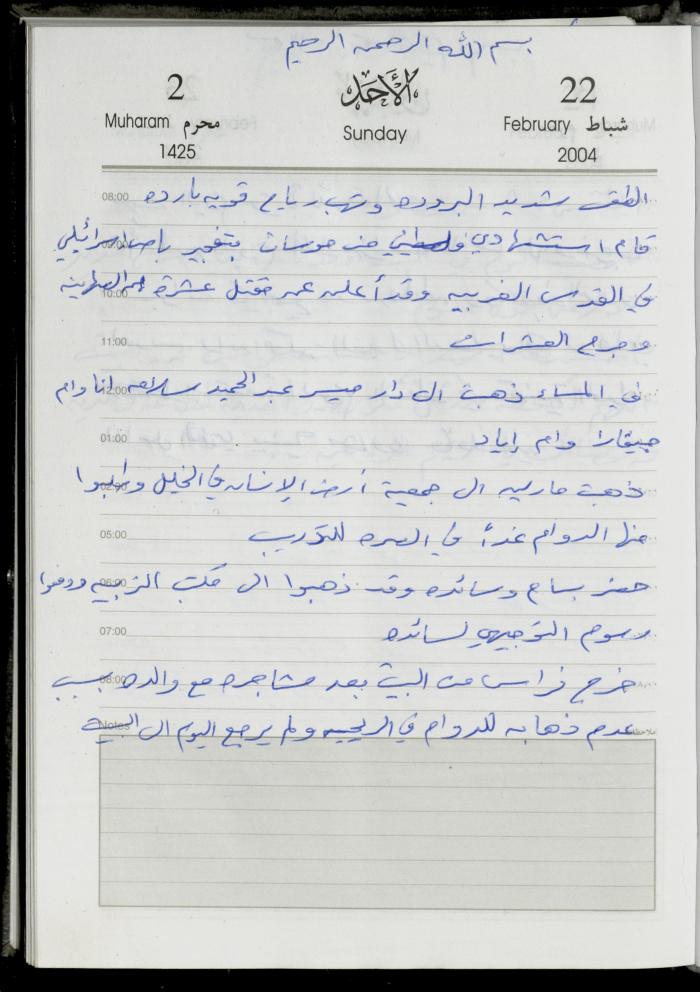 بسم الله الرحمن الرحيم
2 الأحد 22
Muharam محرم Sunday February شباط
1425 2004
08:00 الطقس شديد البروده وتهب رياح قويه بارده
09:00 قام استشهادي فلسطيني من حوسان بتفجير باص اسرائيلي
10:00 في القدس الغربيه وقد أعلن عن مقتل عشرة من الصهاينه
11:00 وجرح العشرات
12:00 في المساء ذهبت الى دار ميسر عبد الحميد سلامه انا وام
01:00 جيفارا وام إياد
02:00 ذهبت مارييه الى جمعية أرض الإنسان في الخليل وطلبوا
05:00 منها الدوام غداً في للتدريب
06:00 حضر بسام وسائده وقد ذهبوا الى مكتب التربيه ودفعوا
07:00 رسوم التوجيهي لسائده
08:00 خرج فراس من البيت بعد مشاجره مع والده بسبب
Notes عدم ذهابه للدوام في ولم يرجع اليوم الى البيت ملاحظات